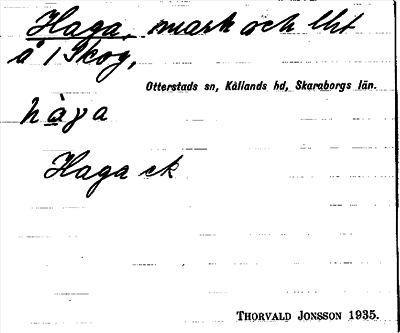 Haga, mark och lht
å 1 Skog,
Otterstads sn, Kållands hd, Skaraborgs län.
hàga
Haga ek
THORVALD JONSSON 1935.